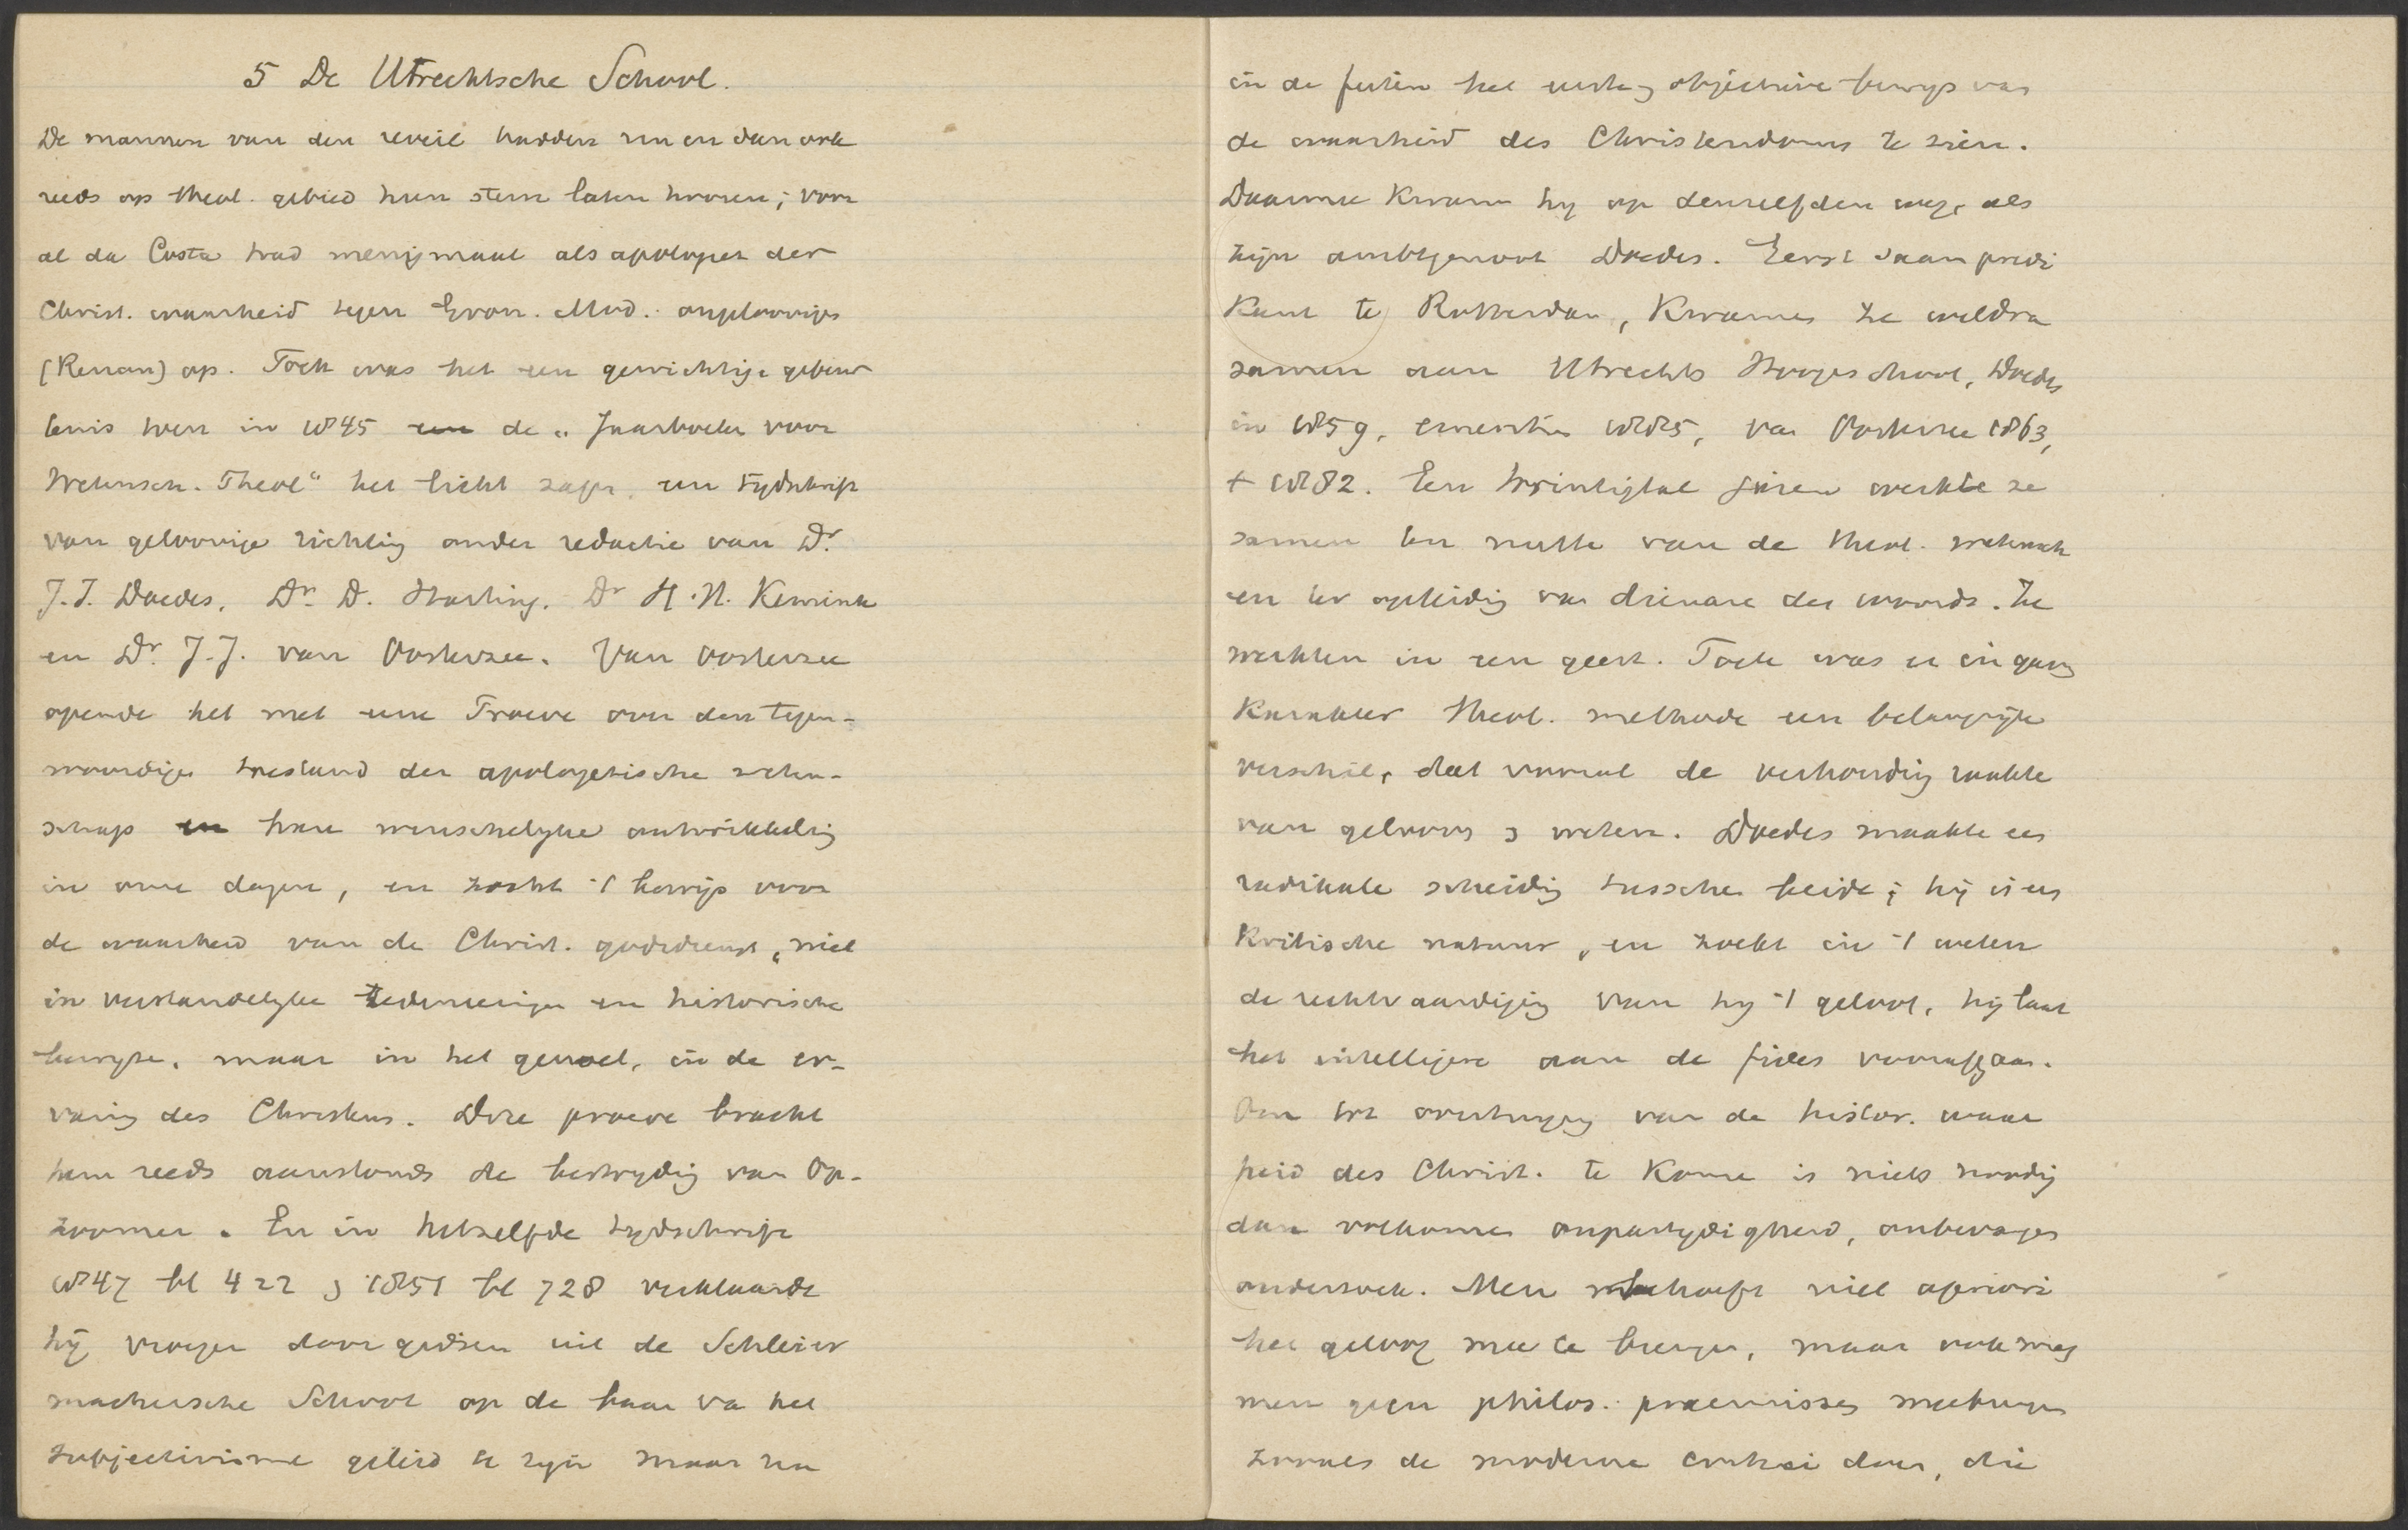 5 De Utrechtsche School.
De mannen van den reveil hadden nu en dan ook
reeds op theol. gebied hun stem laten hooren; voor
al da Costa trad menigmaal als apologeet der
Christ. waarheid tegen Gron. Mod. ongeloovigen
(Renan) op. Toch was het een gewichtige gebeur
tenis toen in 1845 een de „Jaarboeken voor
Wetensch. Theol“ het licht zagen, een tydschrift
van geloovige richting onder redactie van Dr.
J.I. Doedes, Dr. D. Harting, Dr H.H. Kemink
en Dr. J.J. van Oosterzee. Van Oosterzee
opende het met eene Proeve over den tegen-
woordigen toestand der apologetische weten-
schap en hare wenschelyke ontwikkeling
in onze dagen, en zocht 't bewijs voor
de waarheid van de Christ. godsdienst „niet
in verstandelyke redeneeringen en historische
bewyzen, maar in het gevoel, in de er-
varing des Christens. Deze proeve bracht
hem reeds aanstonds de bestryding van Op-
zoomer. En in hetzelfde tydschrift
1847 bl 422 en 1851 bl 728 verklaarde
hij vroeger door gidsen uit de Schleier
machersche School op de baan va het
subjectivisme geleid te zyn maar nu
in de feiten het eerste en objectieve bewys van
de waarheid des Christendoms te zien.
Daarmee kwam hy op denzelfden weg, als
zijn ambtgenoot Doedes. Eerst saam predi
kant te Rotterdam, kwamen ze weldra
samen aan Utrechts Hoogeschool, Doedes
in 1859, emeritus 1885, van Oosterzee 1863,
+ 1882. Een twintigtal jaren werkte ze
samen ten nutte van de theol. wetensch
en ter opleiding van dienare des woords. Ze
werkten in een geest. Toch was er in gang
karakter theol. methode een belangrijk
verschil, dat vooral de verhouding raakte
van gelooven en weten. Doedes maakte een
radikale scheiding tusschen beide; hij is een
kritische natuur, en zoekt in 't weten
de rechtvaardiging van hy 't geloof, hij laat
het intelligere aan de fides voorafgaan.
Om tot overtuiging van de histor. waar
heid des Christ. te kome is niets noodig
dan volkomen onpartydigheid, onbevangen
onderzoek. Men behoeft niet apriori
het geloof mee te brengen, maar ook mag
men geen philos. praemissen meebrengen
zooals de moderne critici doen, die